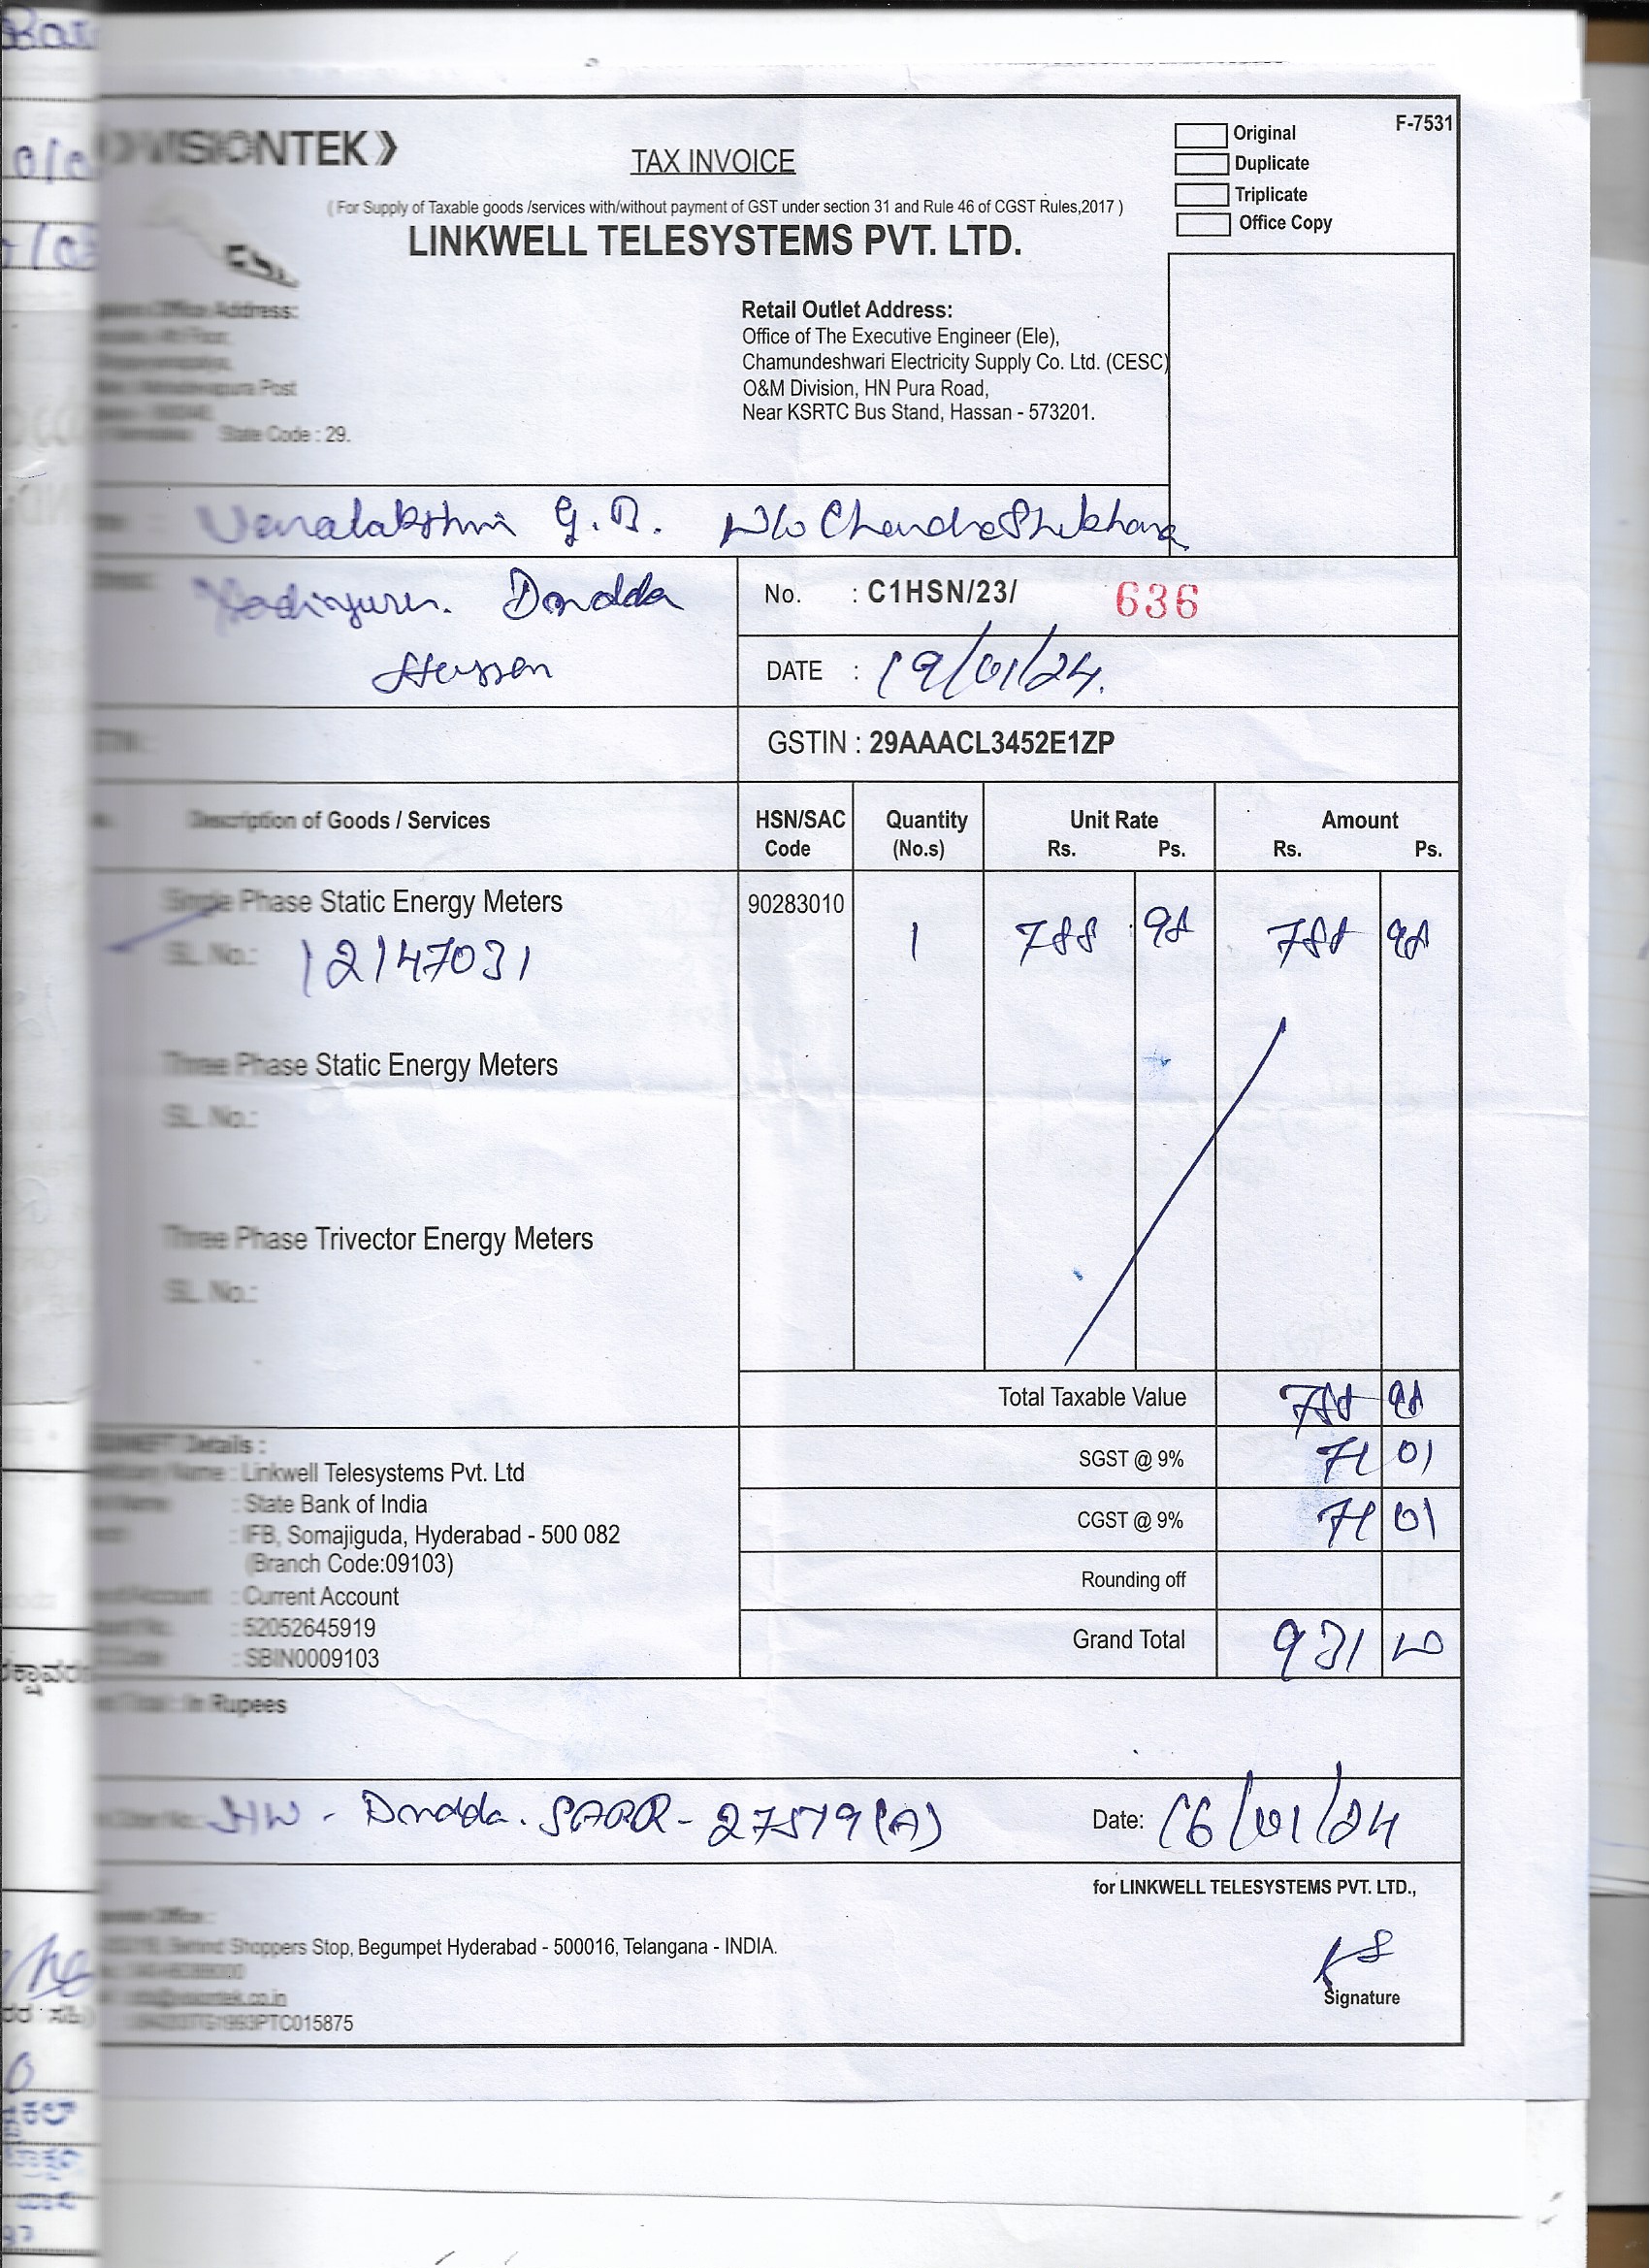 VISIONTEK
TAX INVOICE
Original
Duplicate
Triplicate
Office Copy
F-7531
( For Supply of Taxable goods /services with/without payment of GST under section 31 and Rule 46 of CGST Rules,2017 )
LINKWELL TELESYSTEMS PVT. LTD.
Office Address:
Post
State Code : 29.
Retail Outlet Address:
Office of The Executive Engineer (Ele),
Chamundeshwari Electricity Supply Co. Ltd. (CESC)
O&M Division, HN Pura Road,
Near KSRTC Bus Stand, Hassan - 573201.
G.D. W/o ChandraShekhara
Dndda
Hassan
No. : C1HSN/23/ 636
DATE : 19/01/24.
GSTIN : 29AAACL3452E1ZP
Description of Goods / Services HSN/SAC Code Quantity (No.s) Unit Rate Rs. Ps. Amount Rs. Ps.
Single Phase Static Energy Meters 90283010 1 788 98 788 98
SL. No.: 12147031
Three Phase Static Energy Meters
SL. No.:
Three Phase Trivector Energy Meters
SL. No.:
Total Taxable Value 788 98
SGST @ 9% 71 01
CGST @ 9% 71 01
Rounding off
Grand Total 931 00
Details :
Name : Linkwell Telesystems Pvt. Ltd
Name : State Bank of India
: IFB, Somajiguda, Hyderabad - 500 082
(Branch Code:09103)
Account : Current Account
: 52052645919
Code : SBIN0009103
: In Rupees
Dndda. SARR- 27519(A) Date: 16/01/24
for LINKWELL TELESYSTEMS PVT. LTD.,
Office :
Behind Shoppers Stop, Begumpet Hyderabad - 500016, Telangana - INDIA.
Signature